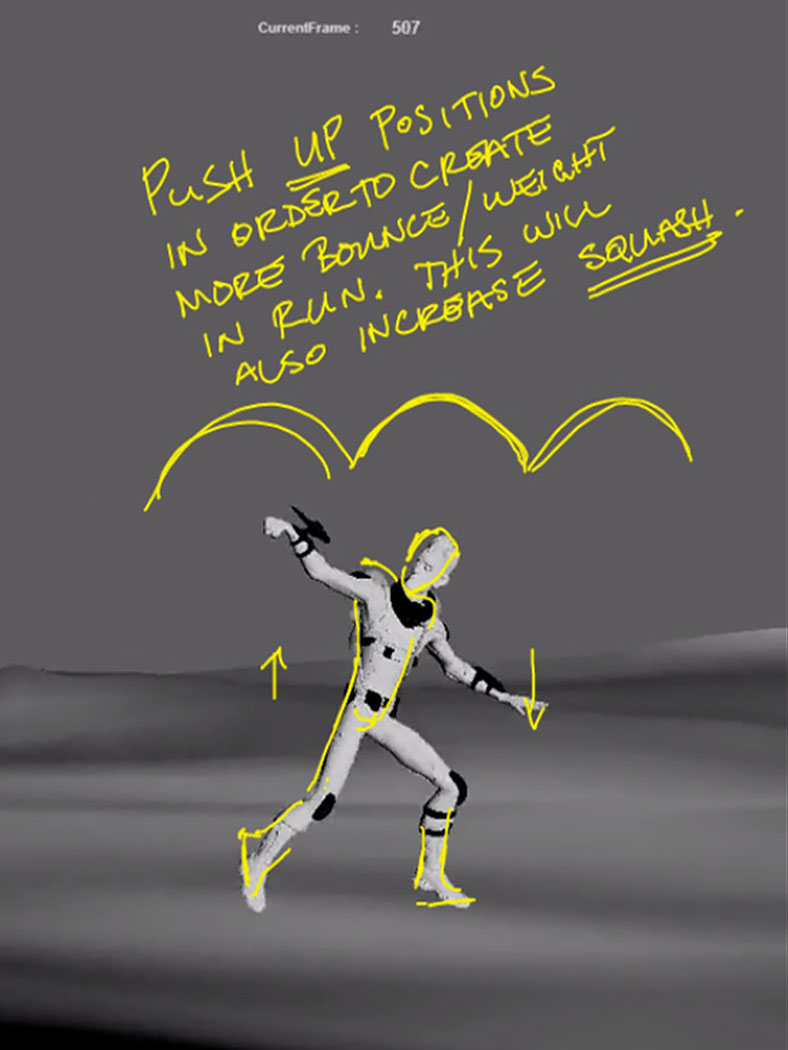 CurrentFrame : 507
PUSH UP POSITIONS
IN ORDER TO CREATE
MORE BOUNCE/WEIGHT
IN RUN. THIS WILL
ALSO INCREASE SQUASH.